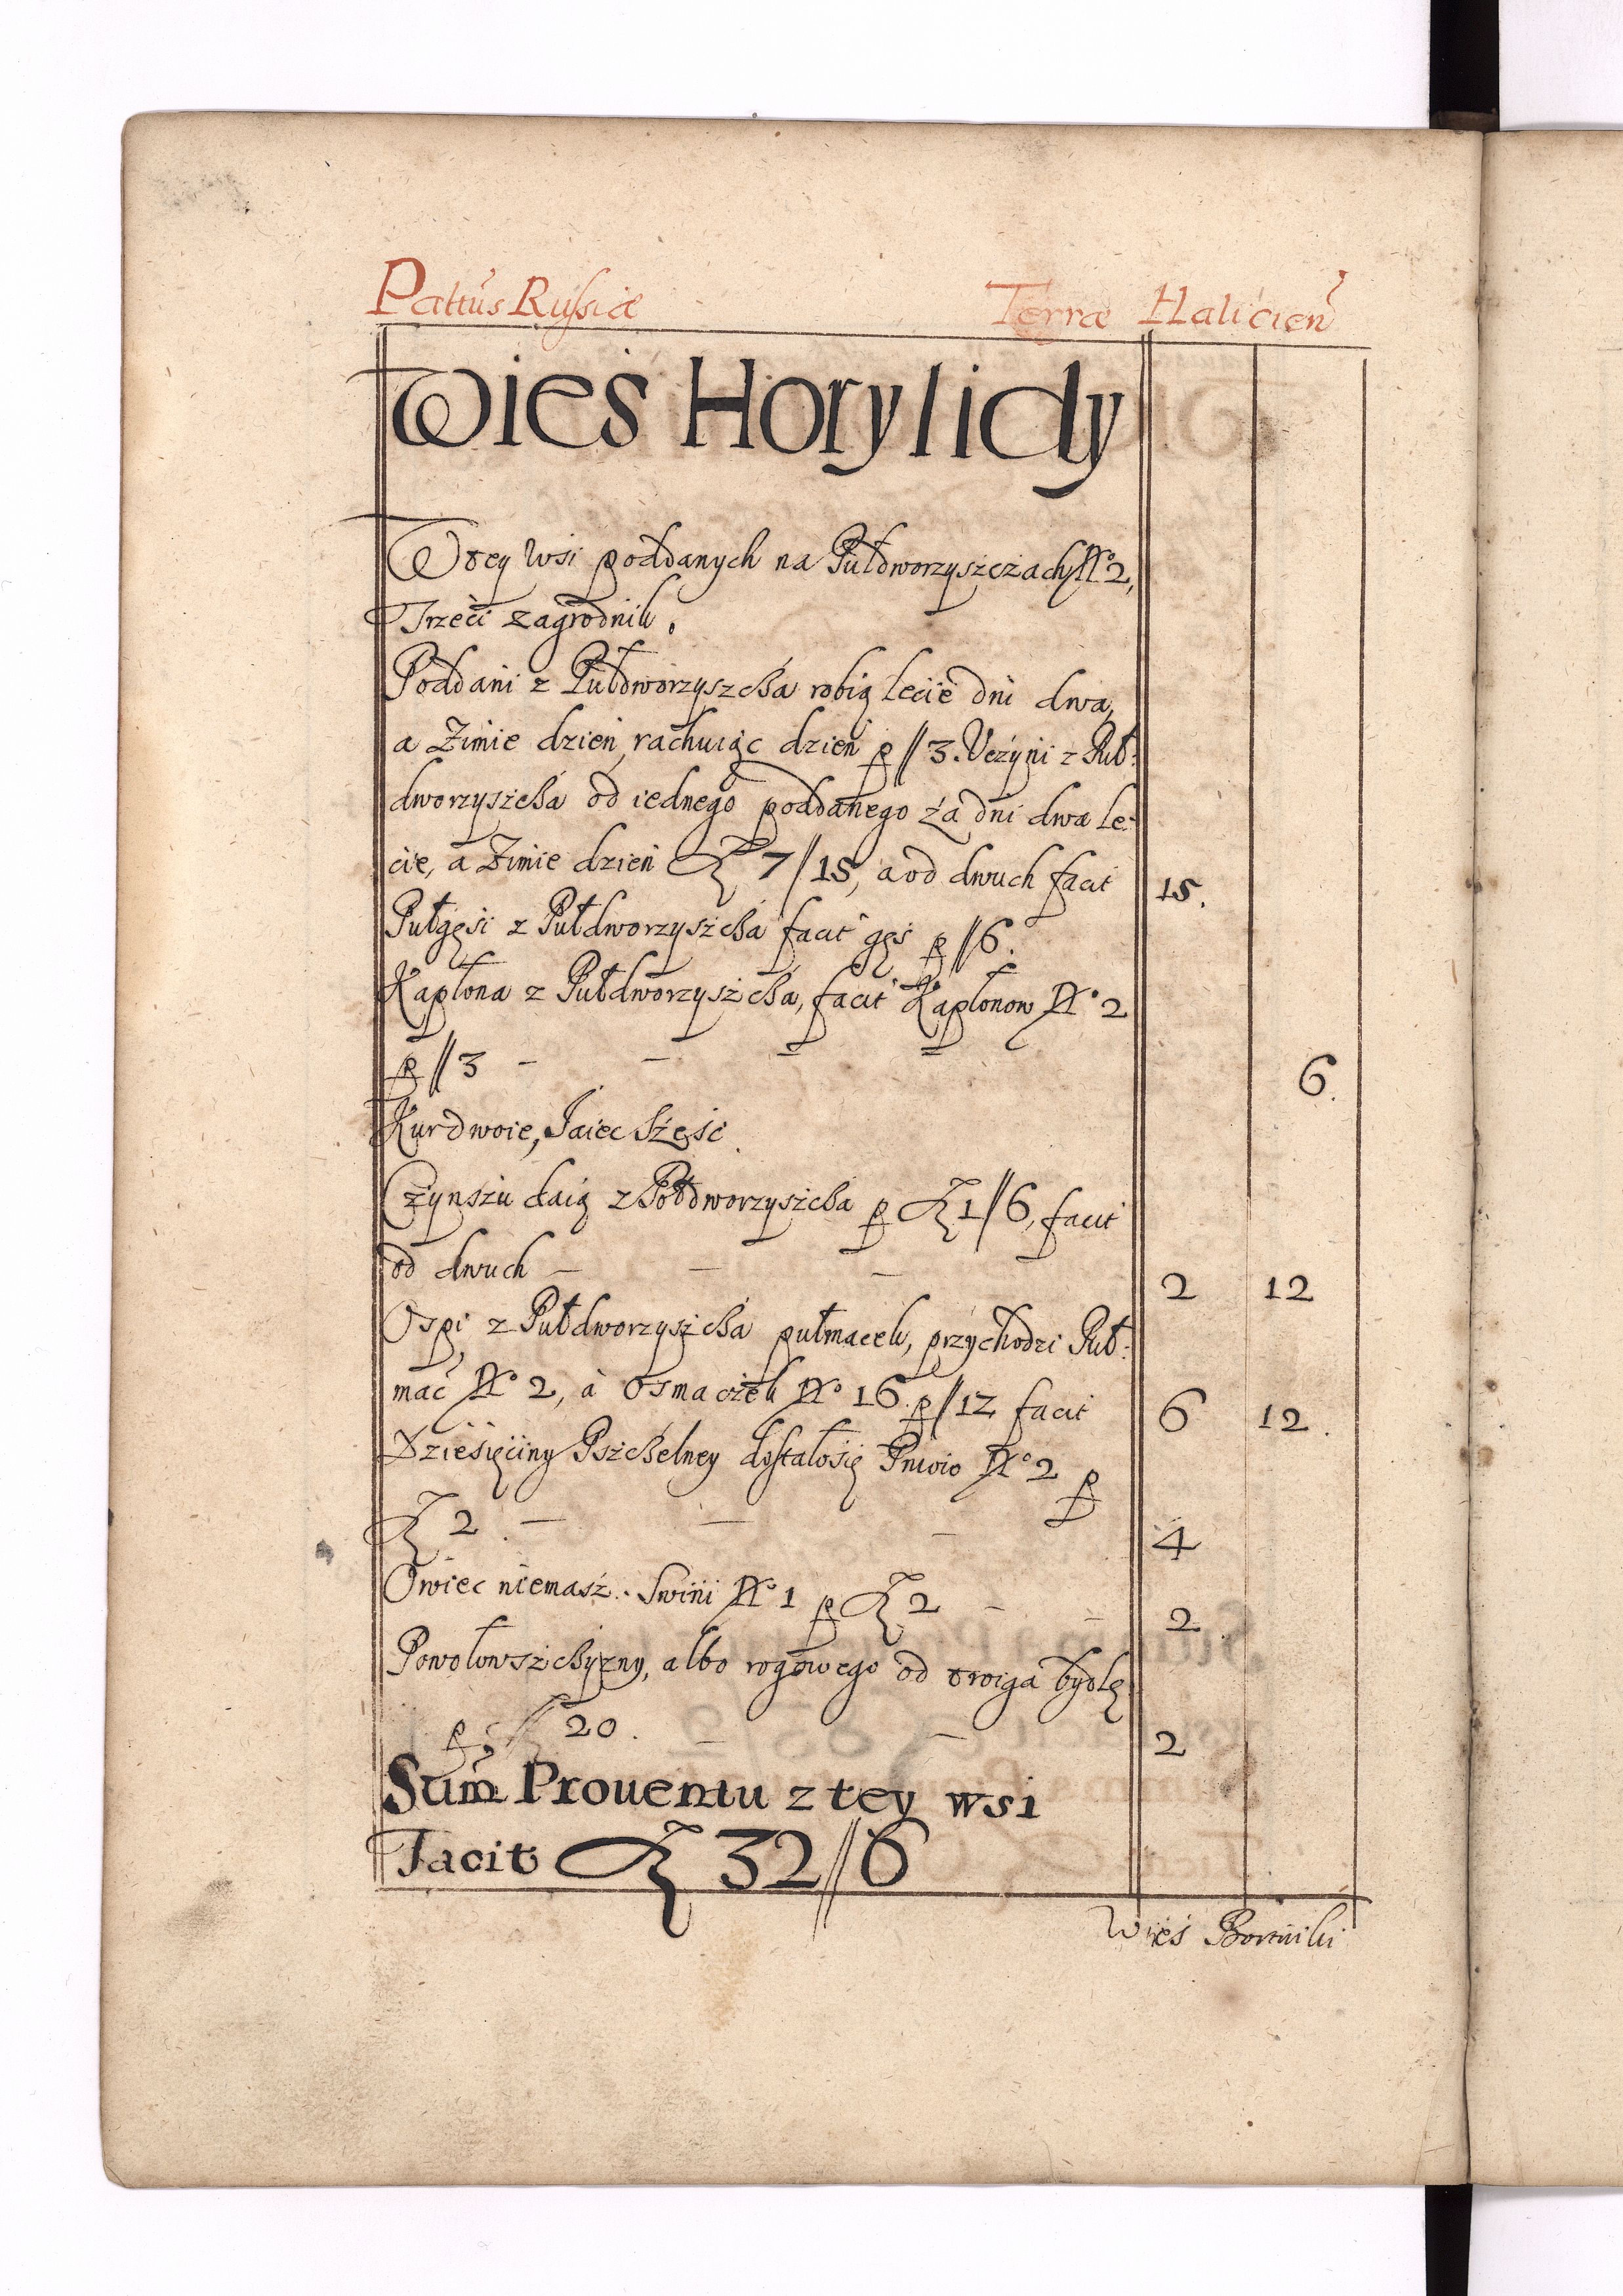 Pattus Russiæ Terræ Halicien
Wieś Horylidy
W tey Wsi poddanych na Pułdworzyszczach No 2,
Trzeci zagrodnik.
Poddani z Pułdworzyszcza robią lecie dni dwa,
a Zimie dzień, rachuiąc dzień p // 3. Uczyni z Puł:
dworzyszcza od iednego poddanego za dni dwa le:
cie, a Zimie dzień f 7 // 15, a od dwuch facit 15.
Pułgęsi z Pułdworzyszcza facit gęś p // 6.
Kapłona z Pułdworzyszcza, facit Kapłonow No 2
p // 3 - - - - 6.
Kur dwoie, Jaiec sześć.
Czynszu daią z Połdworzyszcza p f 1 // 6, facit
od dwuch - - - 2 12
Ospi z Pułdworzyszcza pułmacek, przychodzi Puł:
mać No 2, à Osmaczek No 16. p // 12 facit 6 12.
Dziesięciny Pszczelney dostało się Pniow No 2 p
f 2. - - - 4
Owiec niemasz. Swini No 1 p f 2 - - 2
Powołowszczyzny, albo rogowego od troiga bydłę
p 20. - - 2
Sum Prouentu z tey wsi
Facit f 32 // 6
Wieś Bortniki